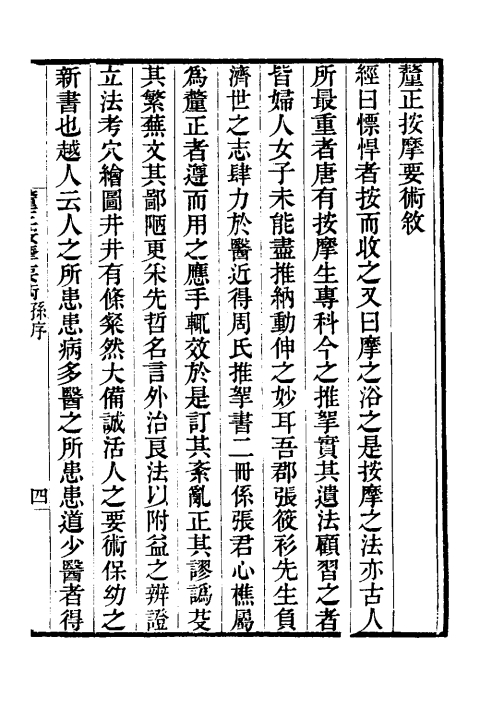 釐正按摩要術敘
經曰慓悍者按而收之又曰摩之浴之是按摩之法亦古人
所最重者唐有按摩生專科今之推拏實其遺法顧習之者
皆婦人女子未能盡推納動伸之妙耳吾郡張筱衫先生負
濟世之志肆力於醫近得周氏推拏書二冊係張君心樵屬
為釐正者遵而用之應手輒效於是訂其紊亂正其謬譌芟
其繁蕪文其鄙陋更釆先哲名言外治良法以附益之辨證
立法考穴繪圖井井有條粲然大備誠活人之要術保幼之
新書也越人云人之所患患病多醫之所患患道少醫者得
釐正按摩要術孫序
四